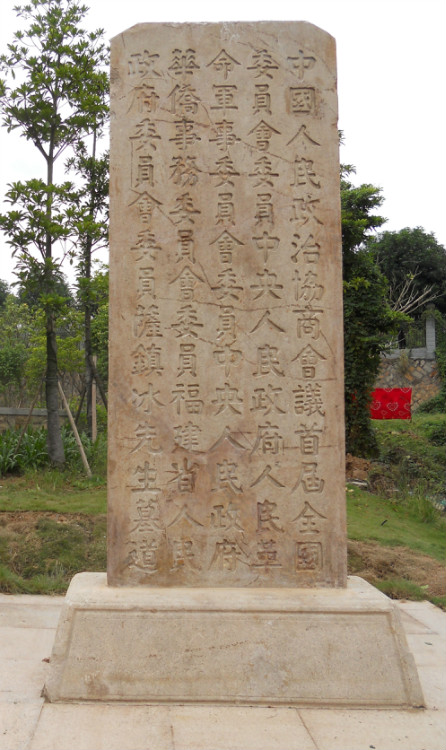 中國人民政治協商會議首屆全國
委員會委員中央人民政府人民革
命軍事委員會委員中央人民政府
華僑事務委員會委員福建省人民
政府委員會委員薩鎮冰先生墓道